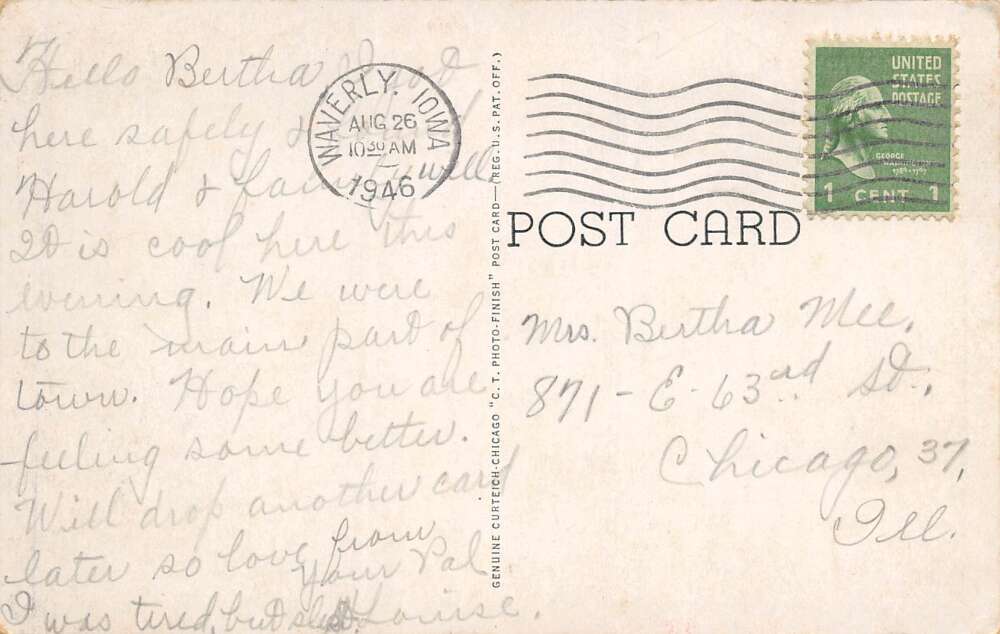 Hello Bertha
here safely
Harold & family well
It is cool here this
evening. We were
to the main part of
town. Hope you are
feeling some better.
Will drop another card
later so love from
your Pal
I was tired, but slept. Louise.
WAVERLY, IOWA
AUG 26
10 30 AM
1946
GENUINE CURTEICH-CHICAGO "C. T. PHOTO-FINISH" POST CARD—(REG. U.S. PAT. OFF.)
UNITED
STATES
POSTAGE
GEORGE
WASHINGTON
1789-1797
1 CENT 1
POST CARD
Mrs. Bertha Mee.
871 - E - 63rd St.,
Chicago, 37,
Ill.